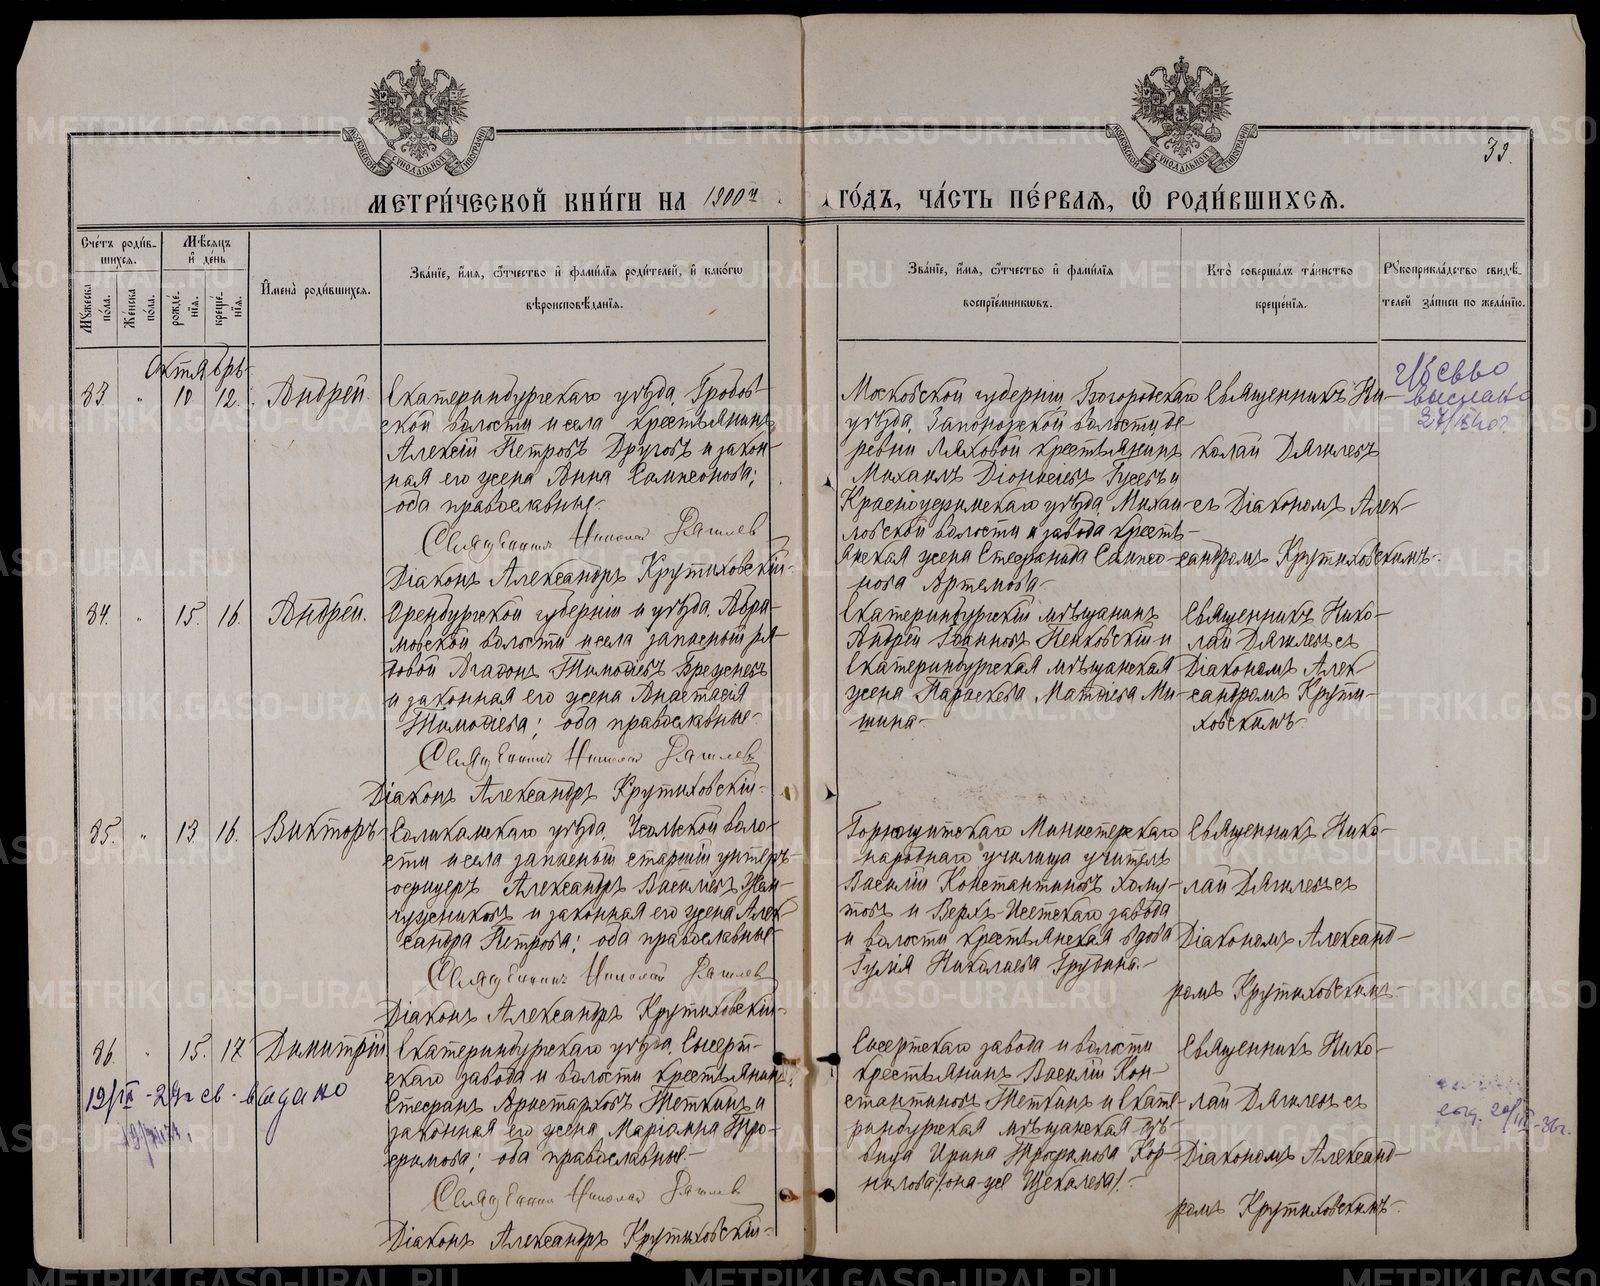 33.
МЕТРИ́ЧЕСКОЙ КНИ́ГИ НА 1900й ГО́ДЪ, ЧА́СТЬ ПЕ́РВАЯ, Ѡ҆ РОДИ́ВШИХСѦ.
Сче́тъ роди́в-
шихсѧ.
Мѣ́сѧцъ
и҆ де́нь
Мꙋ́жеска по́ла.
Же́нска по́ла.
рожде́-
нїѧ.
креще́-
нїѧ.
И҆мена̀ роди́вшихсѧ.
Зва́нїе, и҆́мѧ, ѻ҆́тчество и҆ фами́лїѧ роди́телей, и҆ како́гѡ
вѣроисповѣ́данїѧ.
Зва́нїе, и҆́мѧ, ѻ҆́тчество и҆ фами́лїѧ
воспрїе́мникѡвъ.
Кто̀ соверша́лъ та́инство
креще́нїѧ.
Рꙋкоприкла́дство свидѣ́-
телей за́писи по жела́нїю.
Октябрь
83 " 10 12. Андрей.
Екатеринбургскаго уѣзда, Гробов-
ской волости и села крестьянинъ
Алексій Петровъ Друговъ и закон-
ная его жена Анна Сампсонова;
оба православные.
Священник Николай Дягилев
Діаконъ Александръ Крутиховскій.
Московской губерніи Богородскаго
уѣзда, Запонорской волости, де-
ревни Ляховой крестьянинъ
Михаилъ Діонисіевъ Гусевъ и
Красноуфимскаго уѣзда, Михай-
ловской волости и завода кресть-
янская жена Стефанида Сампсо-
нова Артемова.
Священникъ Ни-
колай Дягилевъ
съ Діакономъ Алек-
сандромъ Крутиховскимъ.
выслано
84. " 15. 16. Андрей.
Оренбургской губерніи и уѣзда, Абра-
мовской волости и села запасный ря-
довой Агафонъ Тимофіевъ Брежневъ
и законная его жена Анастасія
Тимофіева; оба православные.
Священникъ Николай Дягилев
Діаконъ Александръ Крутиховскій.
Екатеринбургскій мѣщанинъ
Андрей Іоанновъ Пенковскій и
Екатеринбургская мѣщанская
жена Параскева Матфіева Ми-
шина.
Священникъ Нико-
лай Дягилевъ съ
Діакономъ Алек-
сандромъ Крути-
ховскимъ.
85. " 13 16. Викторъ
Соликамскаго уѣзда, Усольской воло-
сти и села запасный старшій унтеръ-
офицеръ Александръ Васильевъ Жем-
чужниковъ и законная его жена Алек-
сандра Петрова; оба православные.
Священникъ Николай Дягилев
Діаконъ Александръ Крутиховскій.
Горнощитскаго Министерскаго
народнаго училища учитель
Василій Константиновъ Хому-
товъ и Верхъ-Исетскаго завода
и волости крестьянская вдова
Гулія Николаева Грубина.
Священникъ Нико-
лай Дягилевъ съ
Діакономъ Александ-
ромъ Крутиховскимъ.
86. " 15. 17 Димитрій
19/IX - 29г св. выдано
Екатеринбургскаго уѣзда, Сысерт-
скаго завода и волости крестьянинъ
Стефанъ Аристарховъ Теткинъ и
законная его жена Маріамна Тро-
фимова; оба православные.
Священник Николай Дягилев
Діаконъ Александръ Крутиховскій.
Сысертскаго завода и волости
крестьянинъ Василій Кон-
стантиновъ Теткинъ и Екате-
ринбургская мѣщанская дѣ-
вица Ирина Трофимова Кор-
нилова /она-же Щекалева/.
Священникъ Нико-
лай Дягилевъ съ
Діакономъ Александ-
ромъ Крутиховскимъ.